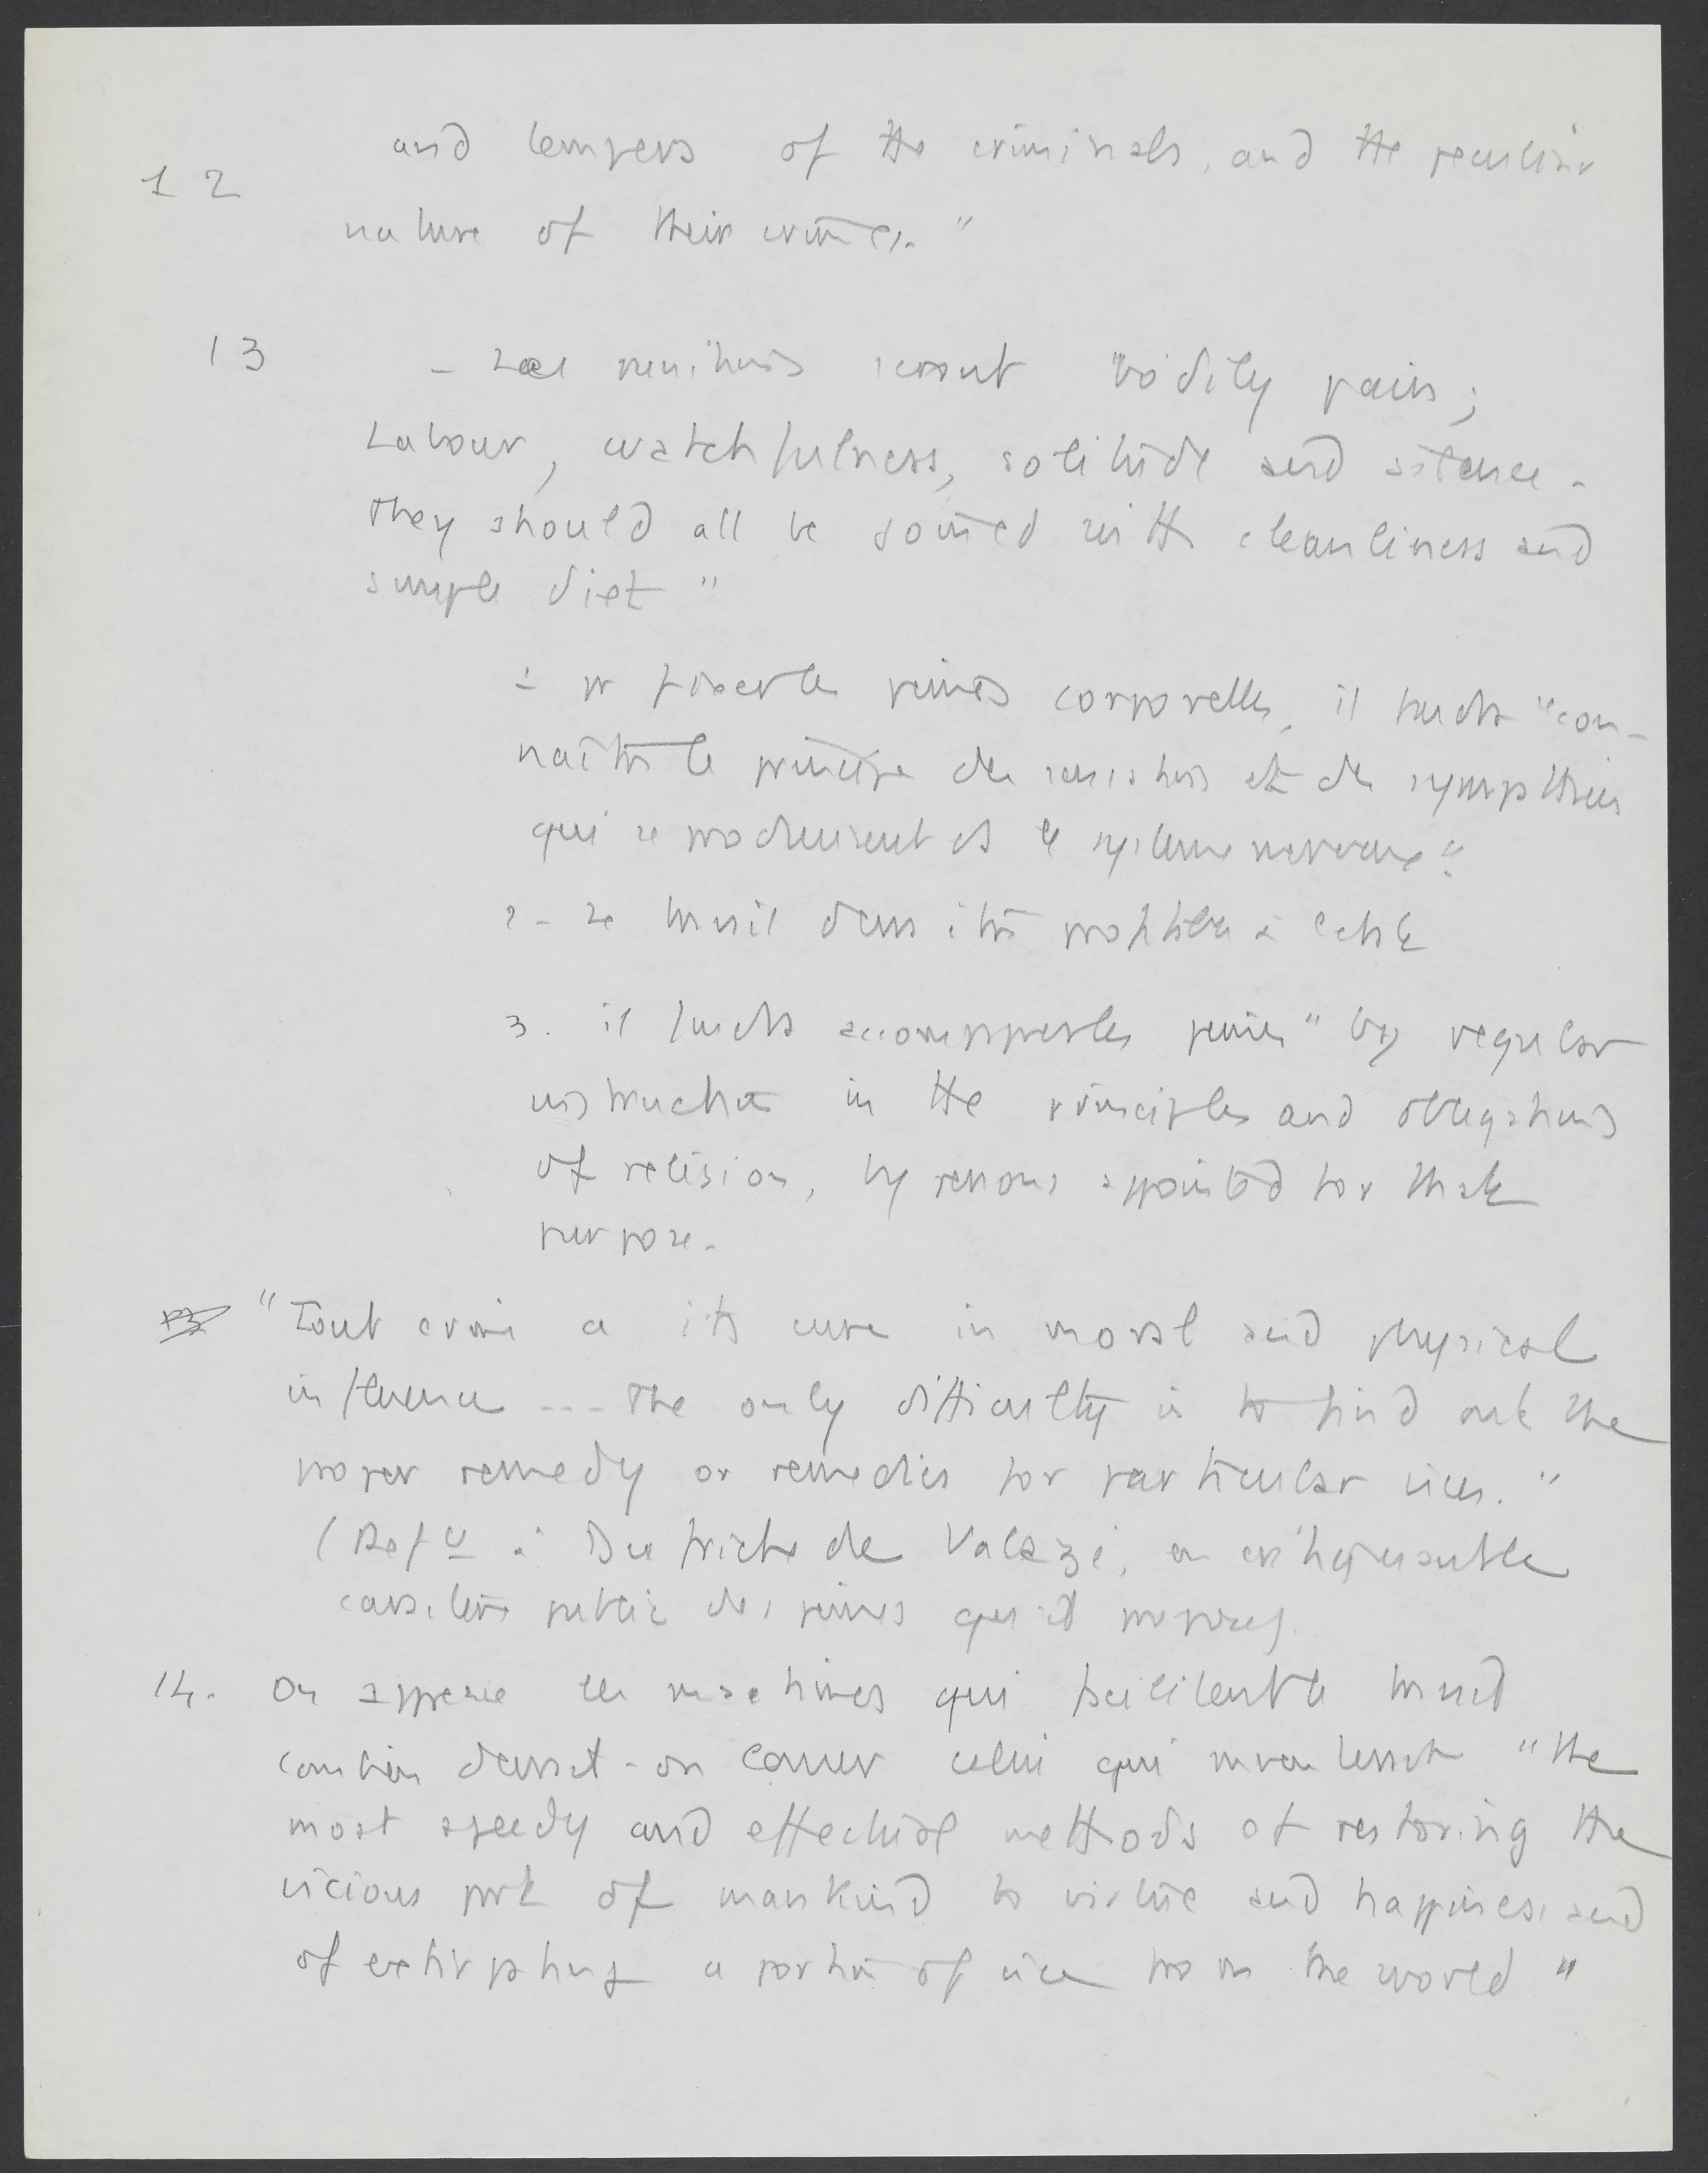 and tempers of the criminals, and the peculiar
12
nature of their crimes. "
13 - Les punitions seront "bodily pain;
Labour, watchfulness, solitude and silence.
They should all be joined with cleanliness and
simple diet "
1 - pr fixer les peines corporelles, il faudra "con-
naître le principe des sensations et des sympathies
qui se produisent ds le système nerveux".
2 - le travail devra être profitable à l'état
3. il faudra accompagner les peines " by regular
instruction in the principles and obligations
of religion, by persons appointed for that
purpose.
"Tout crime a its cure in moral and physical
influence --- The only difficulty is to find out the
proper remedy or remedies for particular vices. "
(Refce à Dufriche de Valazé, en
caractère public des peines qu'il propose).
14. On apprécie les machines qui facilitent le travail
combien devrait-on louer celui qui inventerait "the
most speedy and effectual methods of restoring the
vicious part of mankind to virtue and happiness, and
of extirpating a portion of vice from the world "